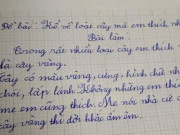 Đề bài: Kể về loài cây mà em thích nh
Bài làm:
Trong rất nhiều loại cây em thích
là cây vừng.
Cây có màu vàng, cứng hình chữ nh
chói, lấp lánh Không những em thí
mẹ em cũng thích. Mẹ nói nhà có c
cây vừng thì đời khấm